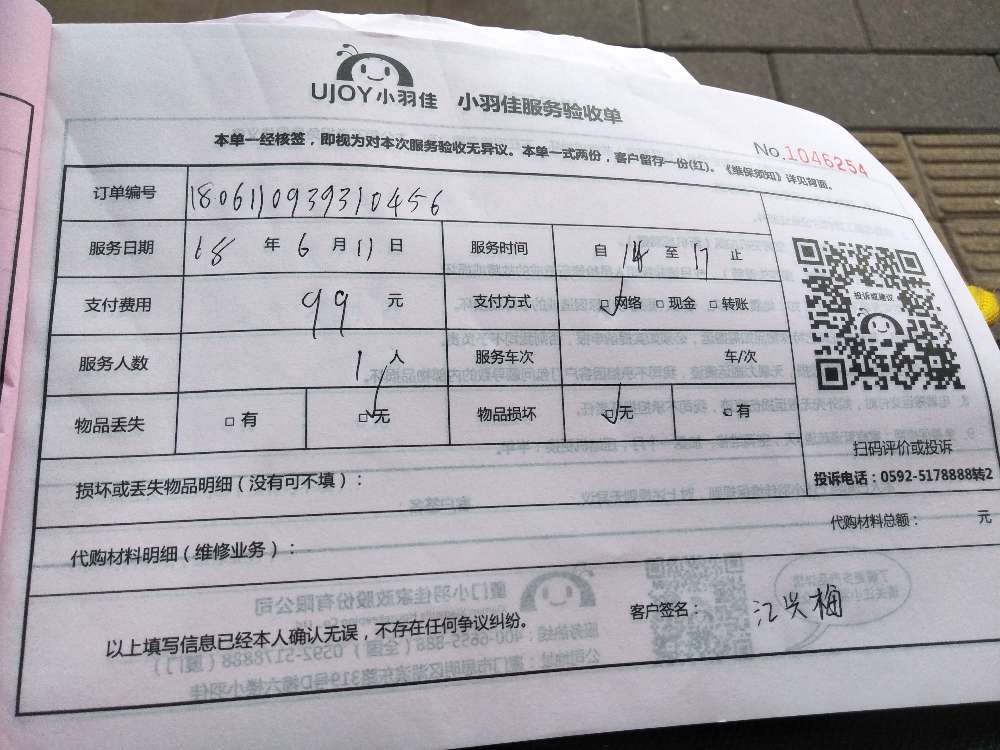 UJOY小羽佳 小羽佳服务验收单
本单一经核签，即视为对本次服务验收无异议。本单一式两份，客户留存一份(红)。《维保须知》详见背面。
No.1046254
订单编号 1806110939310456
服务日期 18 年 6 月 11 日 服务时间 自 14 至 17 止
支付费用 99 元 支付方式 □网络 □现金 □转账
服务人数 1 人 服务车次 车/次
物品丢失 □有 □无 物品损坏 □无 □有
投诉或建议
扫码评价或投诉
投诉电话：0592-5178888转2
损坏或丢失物品明细（没有可不填）：
代购材料明细（维修业务）： 代购材料总额： 元
以上填写信息已经本人确认无误，不存在任何争议纠纷。 客户签名： 江兴梅
厦门小羽佳家政股份有限公司
服务热线：400-6655-888（全国）0592-5178888（厦门）